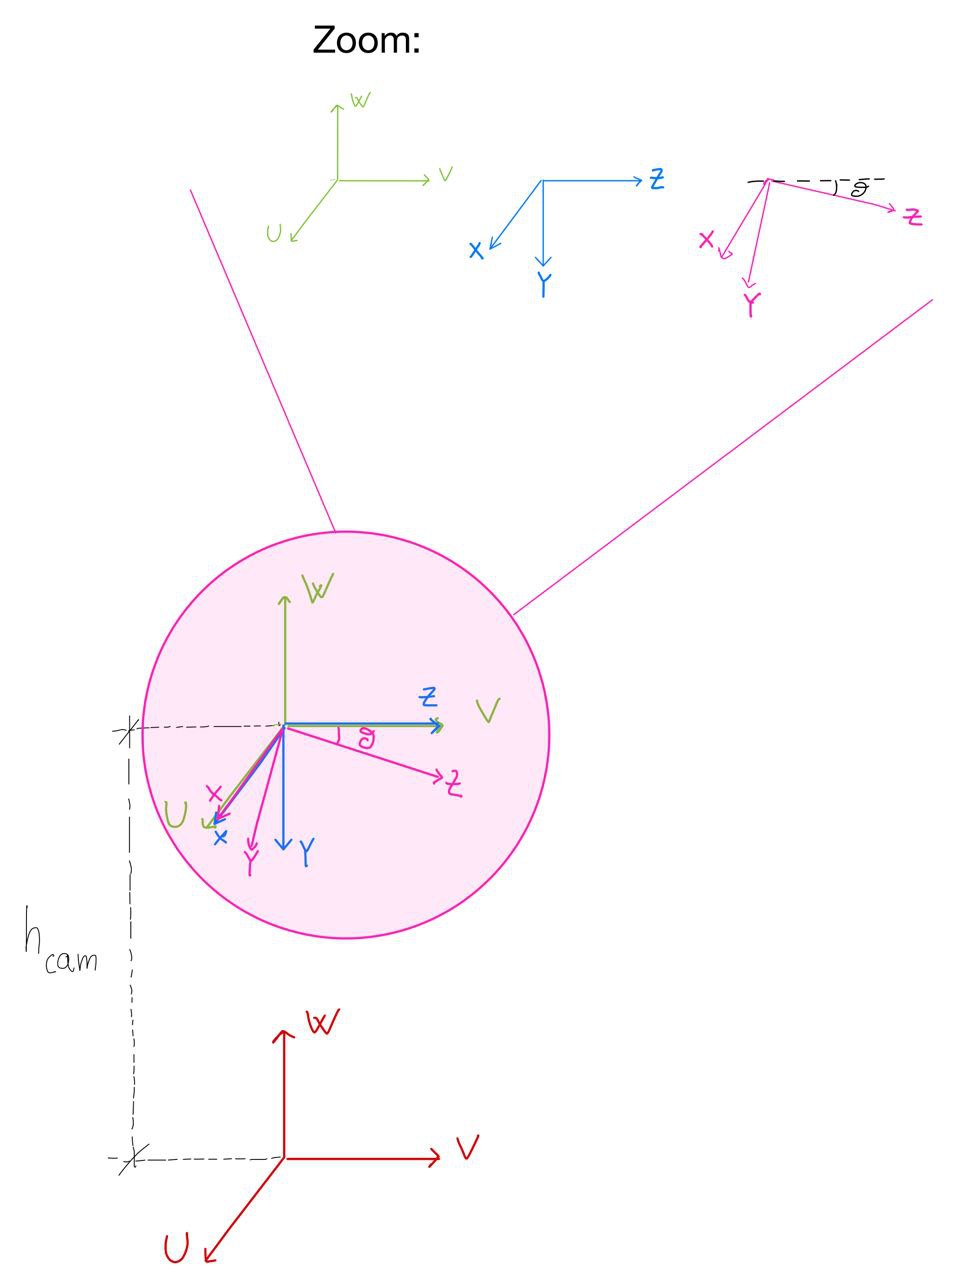 Zoom:
W
V
U
Z
X
Y
Z
X
Y
W
Z
V
Z
X
U
X
Y
Y
h cam
W
V
U